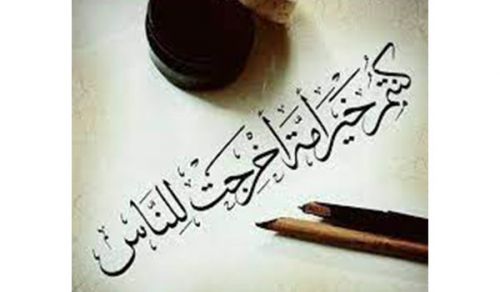 كُنْتُمْ خَيْرَ أُمَّةٍ أُخْرِجَتْ لِلنَّاسِ